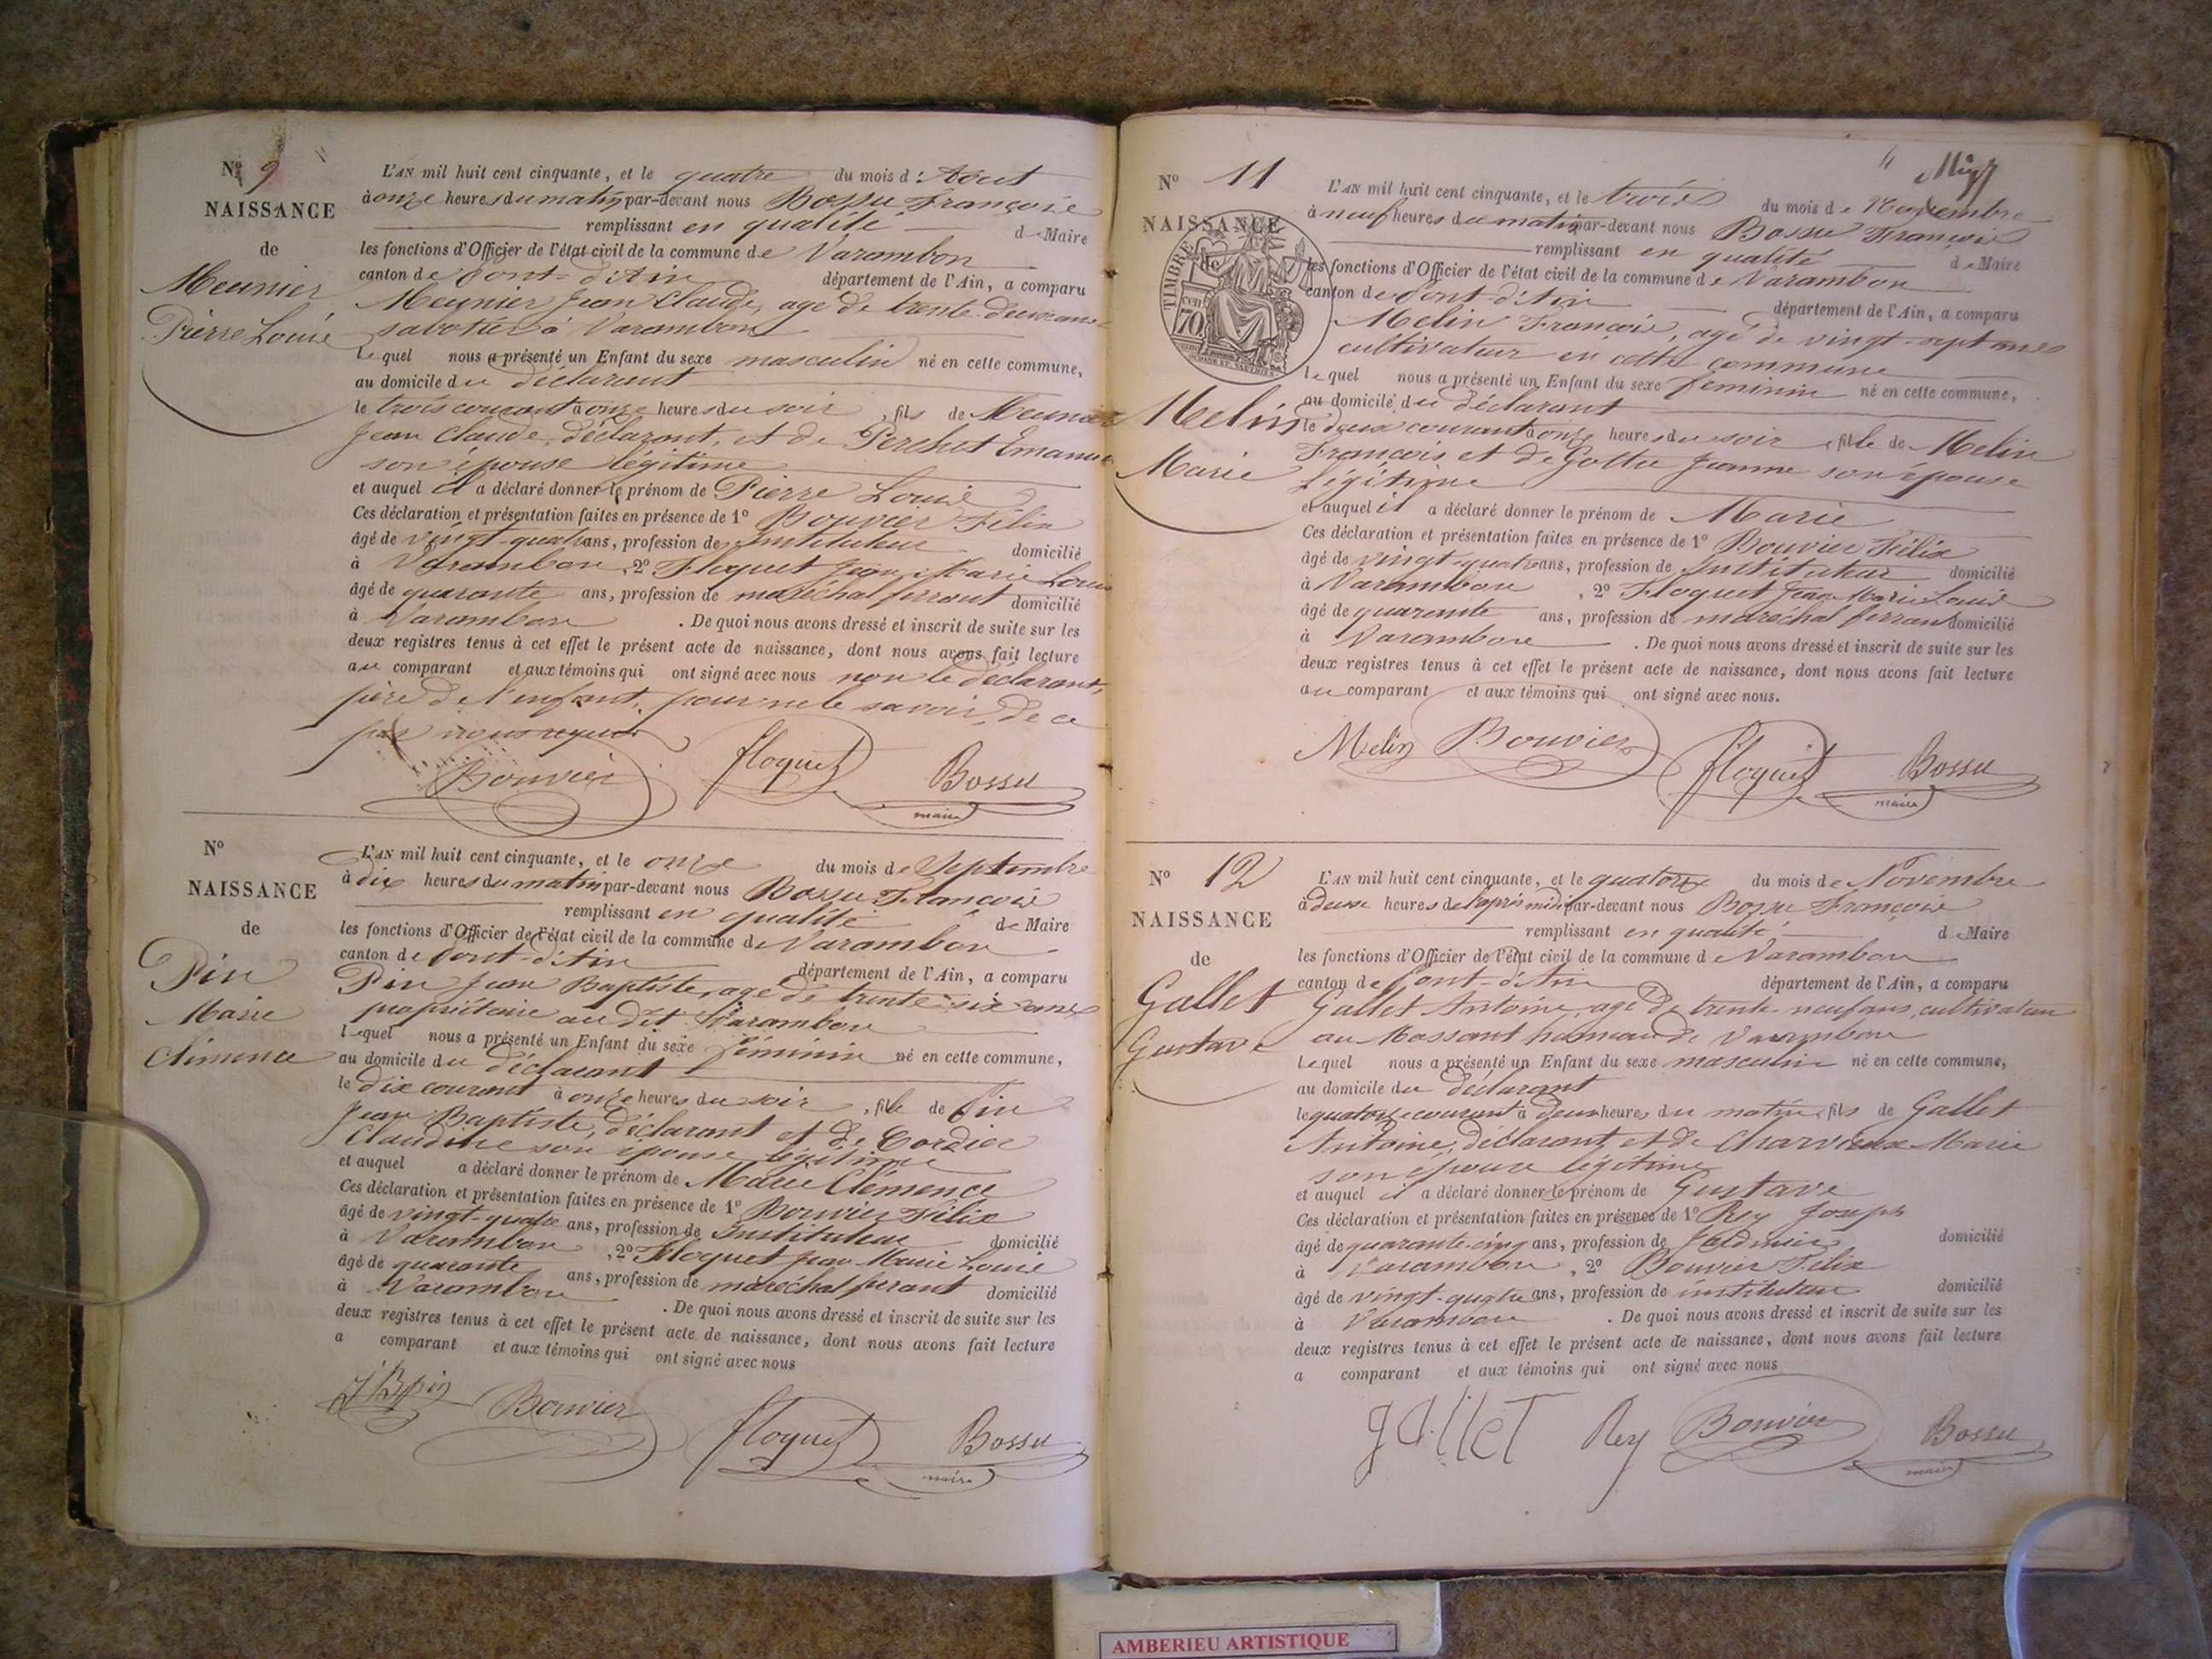 Nº 9
NAISSANCE
de
Meunier
Pierre Louis
L'AN mil huit cent cinquante, et le quatre du mois d'Aout
à onze heures du matin par-devant nous Bossu François
remplissant en qualité de Maire
les fonctions d'Officier de l'état civil de la commune de Varambon
canton de Pont-d'Ain département de l'Ain, a comparu
Meunier Jean Claude, agé de trente deux ans
sabotier à Varambon
lequel nous a présenté un Enfant du sexe masculin né en cette commune,
au domicile du déclarant
le trois courant à onze heures du soir, fils de Meunier
Jean Claude, déclarant, et de Perchet
son épouse légitime
et auquel il a déclaré donner le prénom de Pierre Louis
Ces déclaration et présentation faites en présence de 1º Bouvier Félix
âgé de vingt-quatre ans, profession de Instituteur domicilié
à Varambon, 2º Floquet Jean Marie Louis
âgé de quarante ans, profession de maréchal ferrant domicilié
à Varambon. De quoi nous avons dressé et inscrit de suite sur les
deux registres tenus à cet effet le présent acte de naissance, dont nous avons fait lecture
au comparant et aux témoins qui ont signé avec nous non le déclarant,
père de l'enfant, pour ne le savoir, de ce
par nous requis
Bouvier Floquet Bossu
maire
Nº
NAISSANCE
de
Pin
Marie
Clémence
L'AN mil huit cent cinquante, et le onze du mois de Septembre
à dix heures du matin par-devant nous Bossu François
remplissant en qualité de Maire
les fonctions d'Officier de l'état civil de la commune de Varambon
canton de Pont-d'Ain département de l'Ain, a comparu
Pin Jean Baptiste, agé de trente-six ans
propriétaire au dit Varambon
lequel nous a présenté un Enfant du sexe féminin né en cette commune,
au domicile du déclarant
le dix courant à onze heures du soir, fille de Pin
Jean Baptiste, déclarant et de Cordier
Claudine son épouse légitime
et auquel a déclaré donner le prénom de Marie Clémence
Ces déclaration et présentation faites en présence de 1º Bouvier Félix
âgé de vingt-quatre ans, profession de Instituteur domicilié
à Varambon, 2º Floquet Jean Marie Louis
âgé de quarante ans, profession de maréchal ferrant domicilié
à Varambon. De quoi nous avons dressé et inscrit de suite sur les
deux registres tenus à cet effet le présent acte de naissance, dont nous avons fait lecture
a comparant et aux témoins qui ont signé avec nous
J B pin Bouvier Floquet Bossu
maire
Nº 11
NAISSANCE
TIMBRE
70
Melin
Marie
L'AN mil huit cent cinquante, et le trois du mois de Novembre
à neuf heures du matin par-devant nous Bossu François
remplissant en qualité de Maire
les fonctions d'Officier de l'état civil de la commune de Varambon
canton de Pont-d'Ain département de l'Ain, a comparu
Melin François, agé de vingt-sept ans
cultivateur en cette commune
lequel nous a présenté un Enfant du sexe féminin né en cette commune,
au domicile du déclarant
le deux courant à onze heures du soir, fille de Melin
François et de Jeanne son épouse
légitime
et auquel il a déclaré donner le prénom de Marie
Ces déclaration et présentation faites en présence de 1º Bouvier Félix
âgé de vingt-quatre ans, profession de Instituteur domicilié
à Varambon, 2º Floquet Jean Marie Louis
âgé de quarante ans, profession de maréchal ferrant domicilié
à Varambon. De quoi nous avons dressé et inscrit de suite sur les
deux registres tenus à cet effet le présent acte de naissance, dont nous avons fait lecture
au comparant et aux témoins qui ont signé avec nous.
Melin Bouvier Floquet Bossu
maire
Nº 12
NAISSANCE
de
Gallet
Gustave
L'AN mil huit cent cinquante, et le quatorze du mois de Novembre
à deux heures de l'après midi par-devant nous Bossu François
remplissant en qualité de Maire
les fonctions d'Officier de l'état civil de la commune de Varambon
canton de Pont-d'Ain département de l'Ain, a comparu
Gallet Antoine, agé de trente-neuf ans, cultivateur
au hameau de Varambon
lequel nous a présenté un Enfant du sexe masculin né en cette commune,
au domicile du déclarant
le quatorze courant à deux heures du matin, fils de Gallet
Antoine, déclarant, et de Marie
son épouse légitime
et auquel il a déclaré donner le prénom de Gustave
Ces déclaration et présentation faites en présence de 1º Rey Joseph
âgé de quarante-cinq ans, profession de domicilié
à Varambon, 2º Bouvier Félix
âgé de vingt-quatre ans, profession de instituteur domicilié
à Varambon. De quoi nous avons dressé et inscrit de suite sur les
deux registres tenus à cet effet le présent acte de naissance, dont nous avons fait lecture
a comparant et aux témoins qui ont signé avec nous
gallet Rey Bouvier Bossu
maire
AMBERIEU ARTISTIQUE